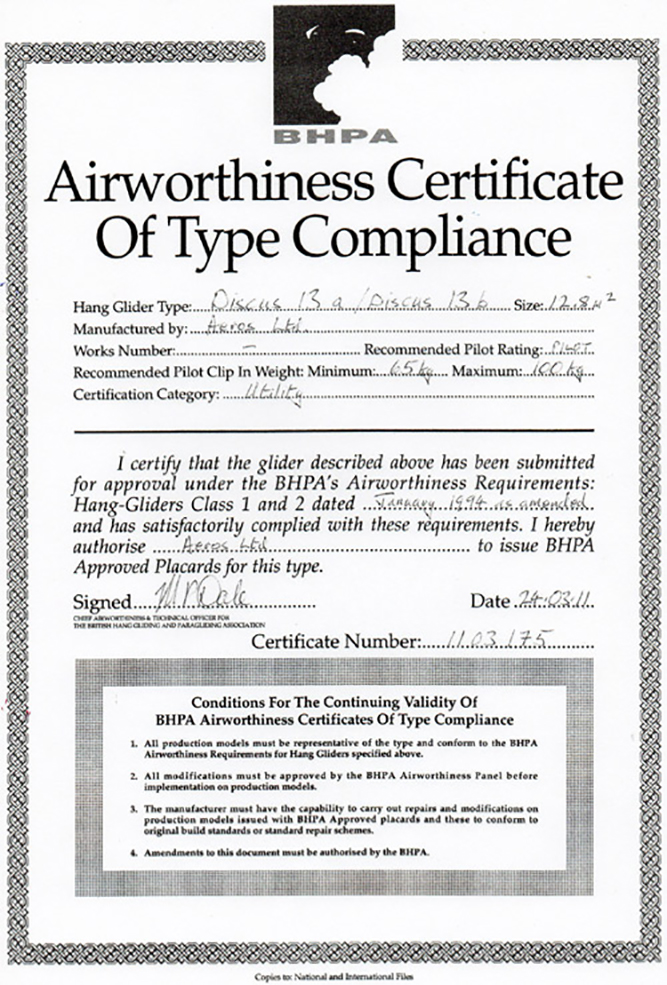 BHPA
Airworthiness Certificate
Of Type Compliance
Hang Glider Type: Discus 13a / Discus 13b Size: 12.8 M²
Manufactured by: Aeros Ltd
Works Number: – Recommended Pilot Rating: PILOT
Recommended Pilot Clip In Weight: Minimum: 65 kg Maximum: 100 kg
Certification Category: Utility
I certify that the glider described above has been submitted
for approval under the BHPA's Airworthiness Requirements:
Hang-Gliders Class 1 and 2 dated January 1994 as amended
and has satisfactorily complied with these requirements. I hereby
authorise Aeros Ltd to issue BHPA
Approved Placards for this type.
Signed M Dale Date 24.03.11
CHIEF AIRWORTHINESS & TECHNICAL OFFICER FOR
THE BRITISH HANG GLIDING AND PARAGLIDING ASSOCIATION
Certificate Number: 11.03.175
Conditions For The Continuing Validity Of
BHPA Airworthiness Certificates Of Type Compliance
1. All production models must be representative of the type and conform to the BHPA
Airworthiness Requirements for Hang Gliders specified above.
2. All modifications must be approved by the BHPA Airworthiness Panel before
implementation on production models.
3. The manufacturer must have the capability to carry out repairs and modifications on
production models issued with BHPA Approved placards and these to conform to
original build standards or standard repair schemes.
4. Amendments to this document must be authorised by the BHPA.
Copies to: National and International Files